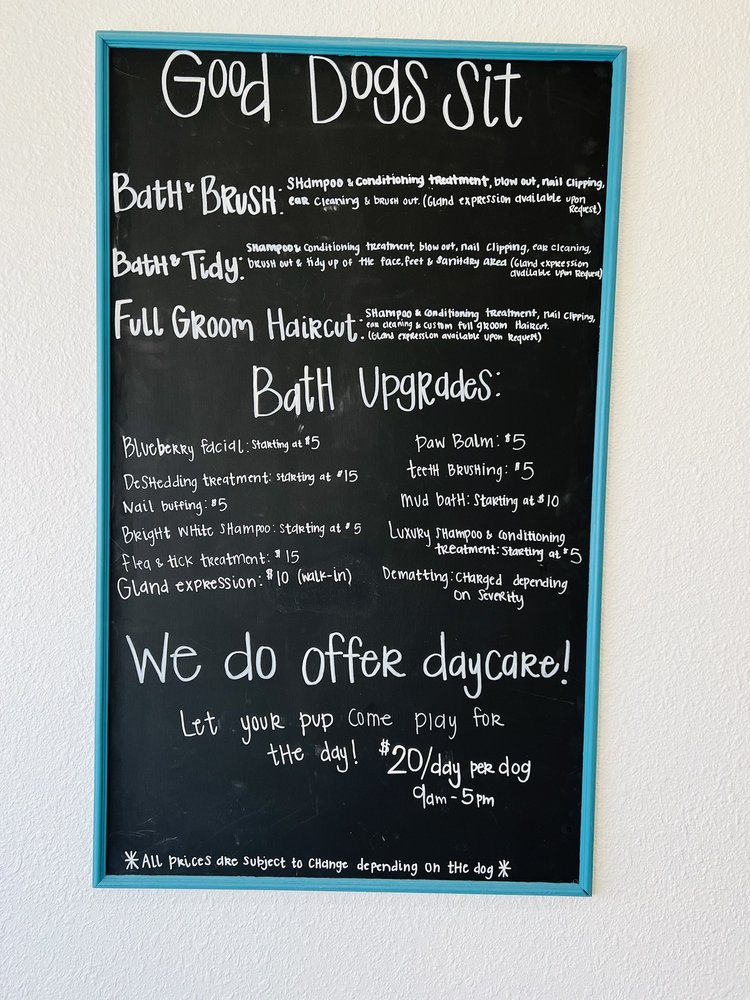 Good Dogs Sit
Bath & Brush: Shampoo & Conditioning treatment, blow out, nail clipping,
ear cleaning & brush out. (Gland expression available upon
Request)
Bath & Tidy: Shampoo & Conditioning treatment, blow out, nail clipping, ear cleaning,
brush out & tidy up of the face, feet & sanitary area (Gland expression
available upon Request)
Full Groom Haircut: Shampoo & Conditioning treatment, nail clipping,
ear cleaning & custom full groom Haircut.
(Gland expression available upon Request)
Bath Upgrades:
Blueberry facial: Starting at $5
Deshedding treatment: starting at $15
Nail buffing: $5
Bright white shampoo: starting at $5
Flea & tick treatment: $15
Gland expression: $10 (walk-in)
Paw Balm: $5
teeth Brushing: $5
mud bath: Starting at $10
Luxury shampoo & conditioning
treatment: Starting at $5
Dematting: charged depending
on severity
We do offer daycare!
Let your pup come play for
the day! $20/day per dog
9am-5pm
*All prices are subject to change depending on the dog*